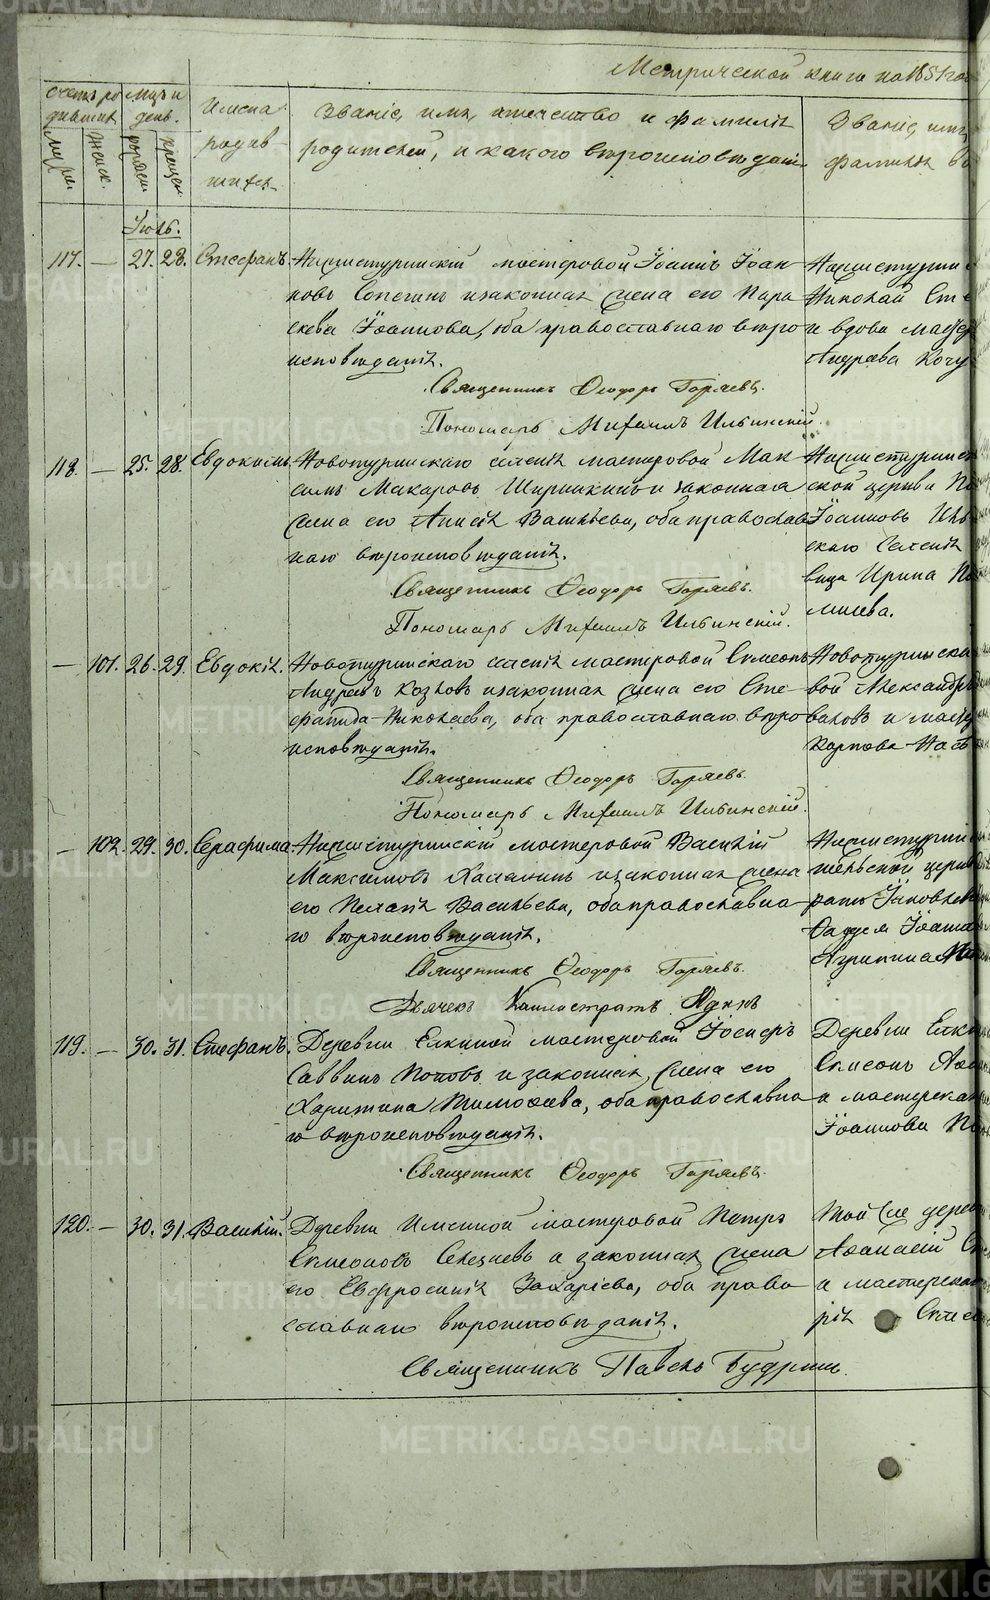 Метрической книги на 1851 год
Счетъ ро
дивших.
Мѣцъ и
день.
Имена
родив
шихся
Званіе, имя, отчество и фамилія
родителей, и какого вѣроисповѣданія
Званіе, имя
фамилія
мужс.
женск.
рожден.
крещен.
Іюль.
117. — 27. 28. Стефанъ. Нижнетуринскій мастеровой Іоаннъ Іоан
новъ и законная жена его Пара
скева Іоаннова, оба православнаго вѣро
исповѣданія.
Священникъ Ѳеодоръ Горяевъ.
Пономарь Михаилъ Ильинскій.
Нижнетурин
Николай Сте
и вдова масте
Андреева Кочу
118. — 25. 28. Евдокимъ. Новотуринскаго селенія мастеровой Мак
симъ Макаровъ Ширинкинъ и законная
жена его Анисія Васильева, оба православ
наго вѣроисповѣданія.
Священникъ Ѳеодоръ Горяевъ.
Пономарь Михаилъ Ильинскій.
Нижнетуринс
ской церкви По
Іоанновъ Иль
скаго селенія
вица Ирина По
мшева.
— 101. 26. 29. Евдокія. Новотуринскаго селенія мастеровой Симеонъ
Андреевъ Козловъ и законная жена его Сте
фанида Николаева, оба православнаго вѣро
исповѣданія.
Священникъ Ѳеодоръ Горяевъ.
Пономарь Михаилъ Ильинскій.
Новотуринска
вой Александръ
валовъ и масте
Карпова Нас
— 102. 29. 30. Серафима Нижнетуринскій мастеровой Василій
Максимовъ Халаминъ и законная жена
его Пелагія Васильева, оба православна
го вѣроисповѣданія.
Священникъ Ѳеодоръ Горяевъ.
Дьячекъ Каллистратъ Ядихъ
Нижнетурин
тельской церкви
ратъ Іаковлев
Ѳаддея Іоанна
Агрипина
119. — 30. 31. Стефанъ. Деревни Елкиной мастеровой Іосифъ
Саввинъ Поповъ и законная жена его
Харитина Тимоѳеева, оба православна
го вѣроисповѣданія.
Священникъ Ѳеодоръ Горяевъ.
Деревни Елки
Симеонъ
и мастерская
Іоаннова
120. — 30. 31. Василій. Деревни Именной мастеровой Петръ
Симеоновъ Селезневъ и законная жена
его Евфросинія Захаріева, оба право
славнаго вѣроисповѣданія.
Священникъ Павелъ Будринъ.
Той же дерев
Аѳанасій
и мастерская
рія Симео
METRIKI.GASO-URAL.RU